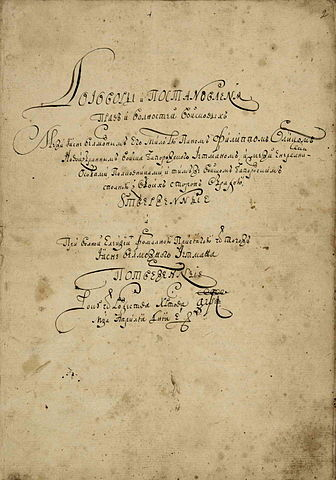 Договоры и Постановленя
Правъ и волностей войсковыхъ
Межи Ясне велможнымъ Его Милостю Паномъ Филиппомъ Орликомъ
Новоизбраннымъ Войска Запорожского Гетманомъ, и межи Енералными
Особами Полковниками и тимъ же Войскомъ Запорожскимъ
з обоихъ сторонъ Обрадою
Утверженные
При волной Елекціи Формалною Присягою от того жъ
Ясне велможного Гетмана
Потверженные
Року от Рождества Христова ҂аѱі
Мца Априля Дня е҃